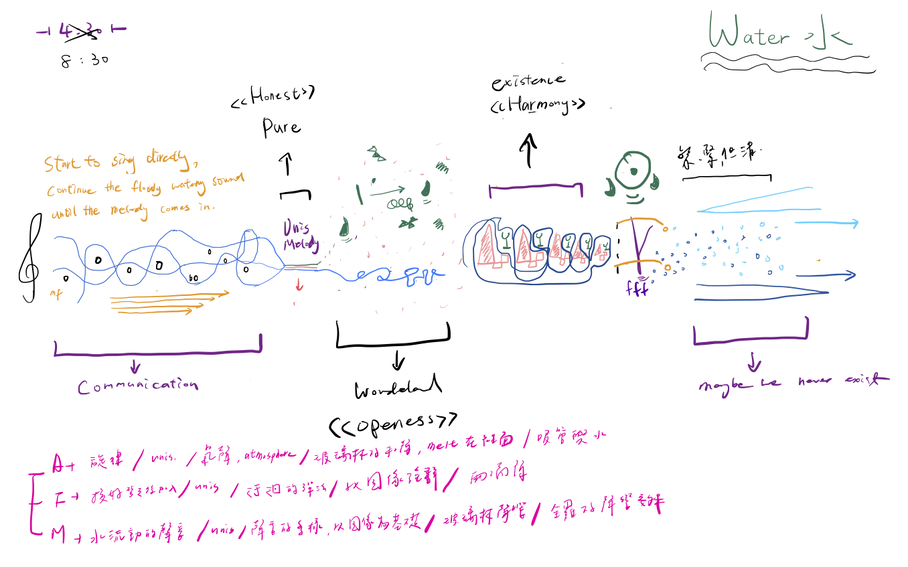 4:30
8:30
Water 水
<<Honest>>
Pure
existence
<<Harmony>>
Start to sing directly,
continue the floody watery sound
until the melody comes in.
Unis
Melody
mf
fff
Communication
Wonderland
<<openess>>
maybe we never exist
A → 旋律 / unis. / 氣降, atmosphere / 玻璃杯的和降, melt 在裡面 / 吸管吹水
F → / unis / 迂迴的彈法 / 以圖像詮釋 /
M → 水流動的聲音 / unis / 聲音的多樣, 以圖像為基礎 / 玻璃杯聲響 / 的聲響